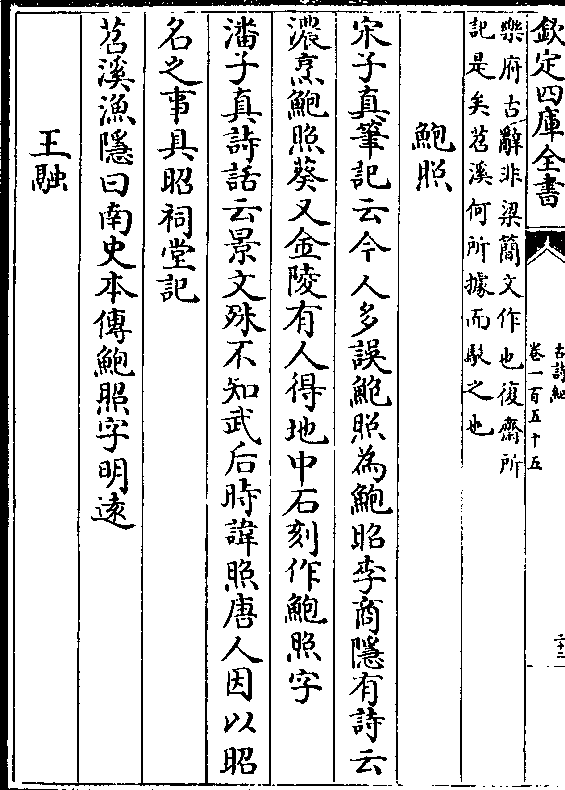 欽定四庫全書
古詩紀
卷一百五十五
二十二
樂府古辭非梁簡文作也復齋所
記是矣苕溪何所據而駁之也
鮑照
宋子真筆記云今人多誤鮑照為鮑昭李商隱有詩云
濃烹鮑照葵又金陵有人得地中石刻作鮑照字
潘子真詩話云景文殊不知武后時諱照唐人因以昭
名之事具昭祠堂記
苕溪漁隱曰南史本傳鮑照字明遠
王融